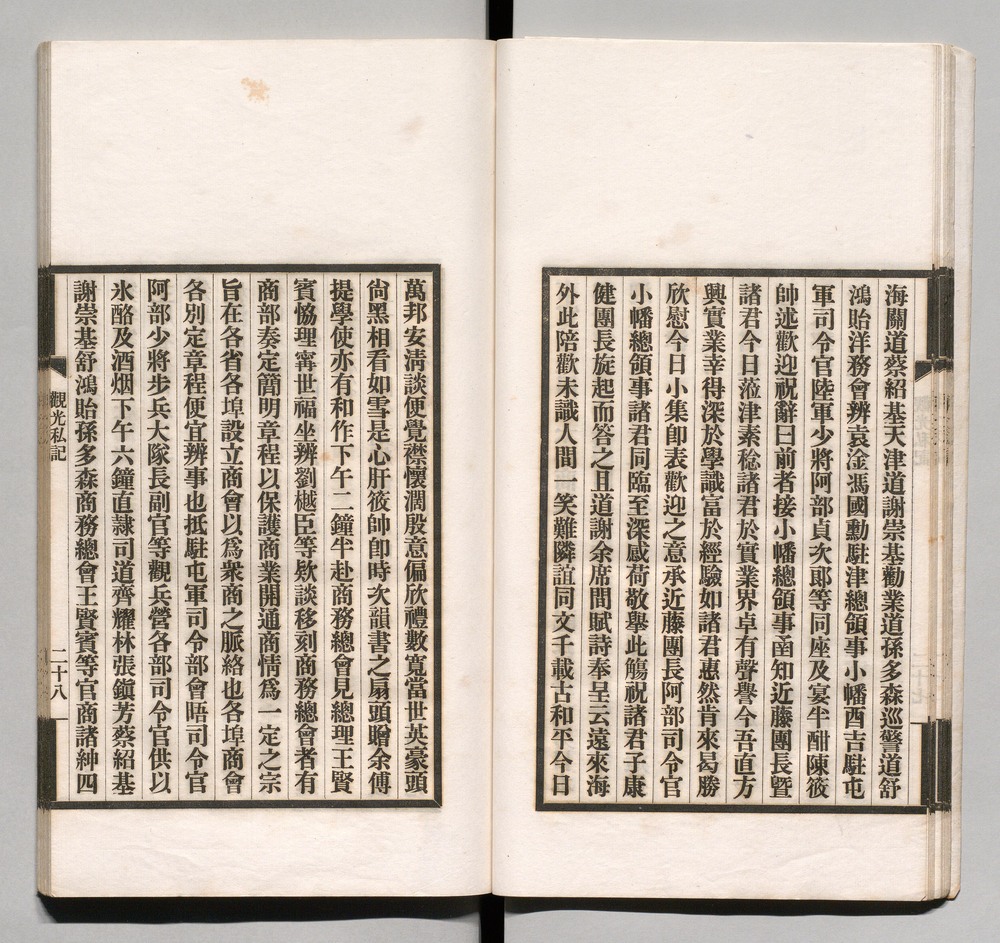 海關道蔡紹基天津道謝崇基勸業道孫多森巡警道舒
鴻貽洋務會辨袁淦馮國勳駐津總領事小幡酉吉駐屯
軍司令官陸軍少將阿部貞次郎等同座及宴半酣陳筱
帥述歡迎祝辭曰前者接小幡總領事凾知近藤團長曁
諸君今日蒞津素稔諸君於實業界卓有聲譽今吾直方
興實業幸得深於學識富於經驗如諸君惠然肯來曷勝
欣慰今日小集卽表歡迎之意承近藤團長阿部司令官
小幡總領事諸君同臨至深感荷敬舉此觴祝諸君子康
健團長旋起而答之且道謝余席間賦詩奉呈云遠來海
外此陪歡未識人間一笑難隣誼同文千載古和平今日
萬邦安淸談便覺襟懷濶殷意偏欣禮數寬當世英豪頭
尙黑相看如雪是心肝筱帥卽時次韻書之扇頭贈余傅
提學使亦有和作下午二鐘半赴商務總會見總理王賢
賓恊理甯世福坐辨劉樾臣等欵談移刻商務總會者有
商部奏定簡明章程以保護商業開通商情爲一定之宗
旨在各省各埠設立商會以爲衆商之脈絡也各埠商會
各別定章程便宜辨事也抵駐屯軍司令部會晤司令官
阿部少將步兵大隊長副官等觀兵營各部司令官供以
氷酪及酒烟下午六鐘直隷司道齊耀林張鎭芳蔡紹基
謝崇基舒鴻貽孫多森商務總會王賢賓等官商諸紳四
觀光私記
二十八